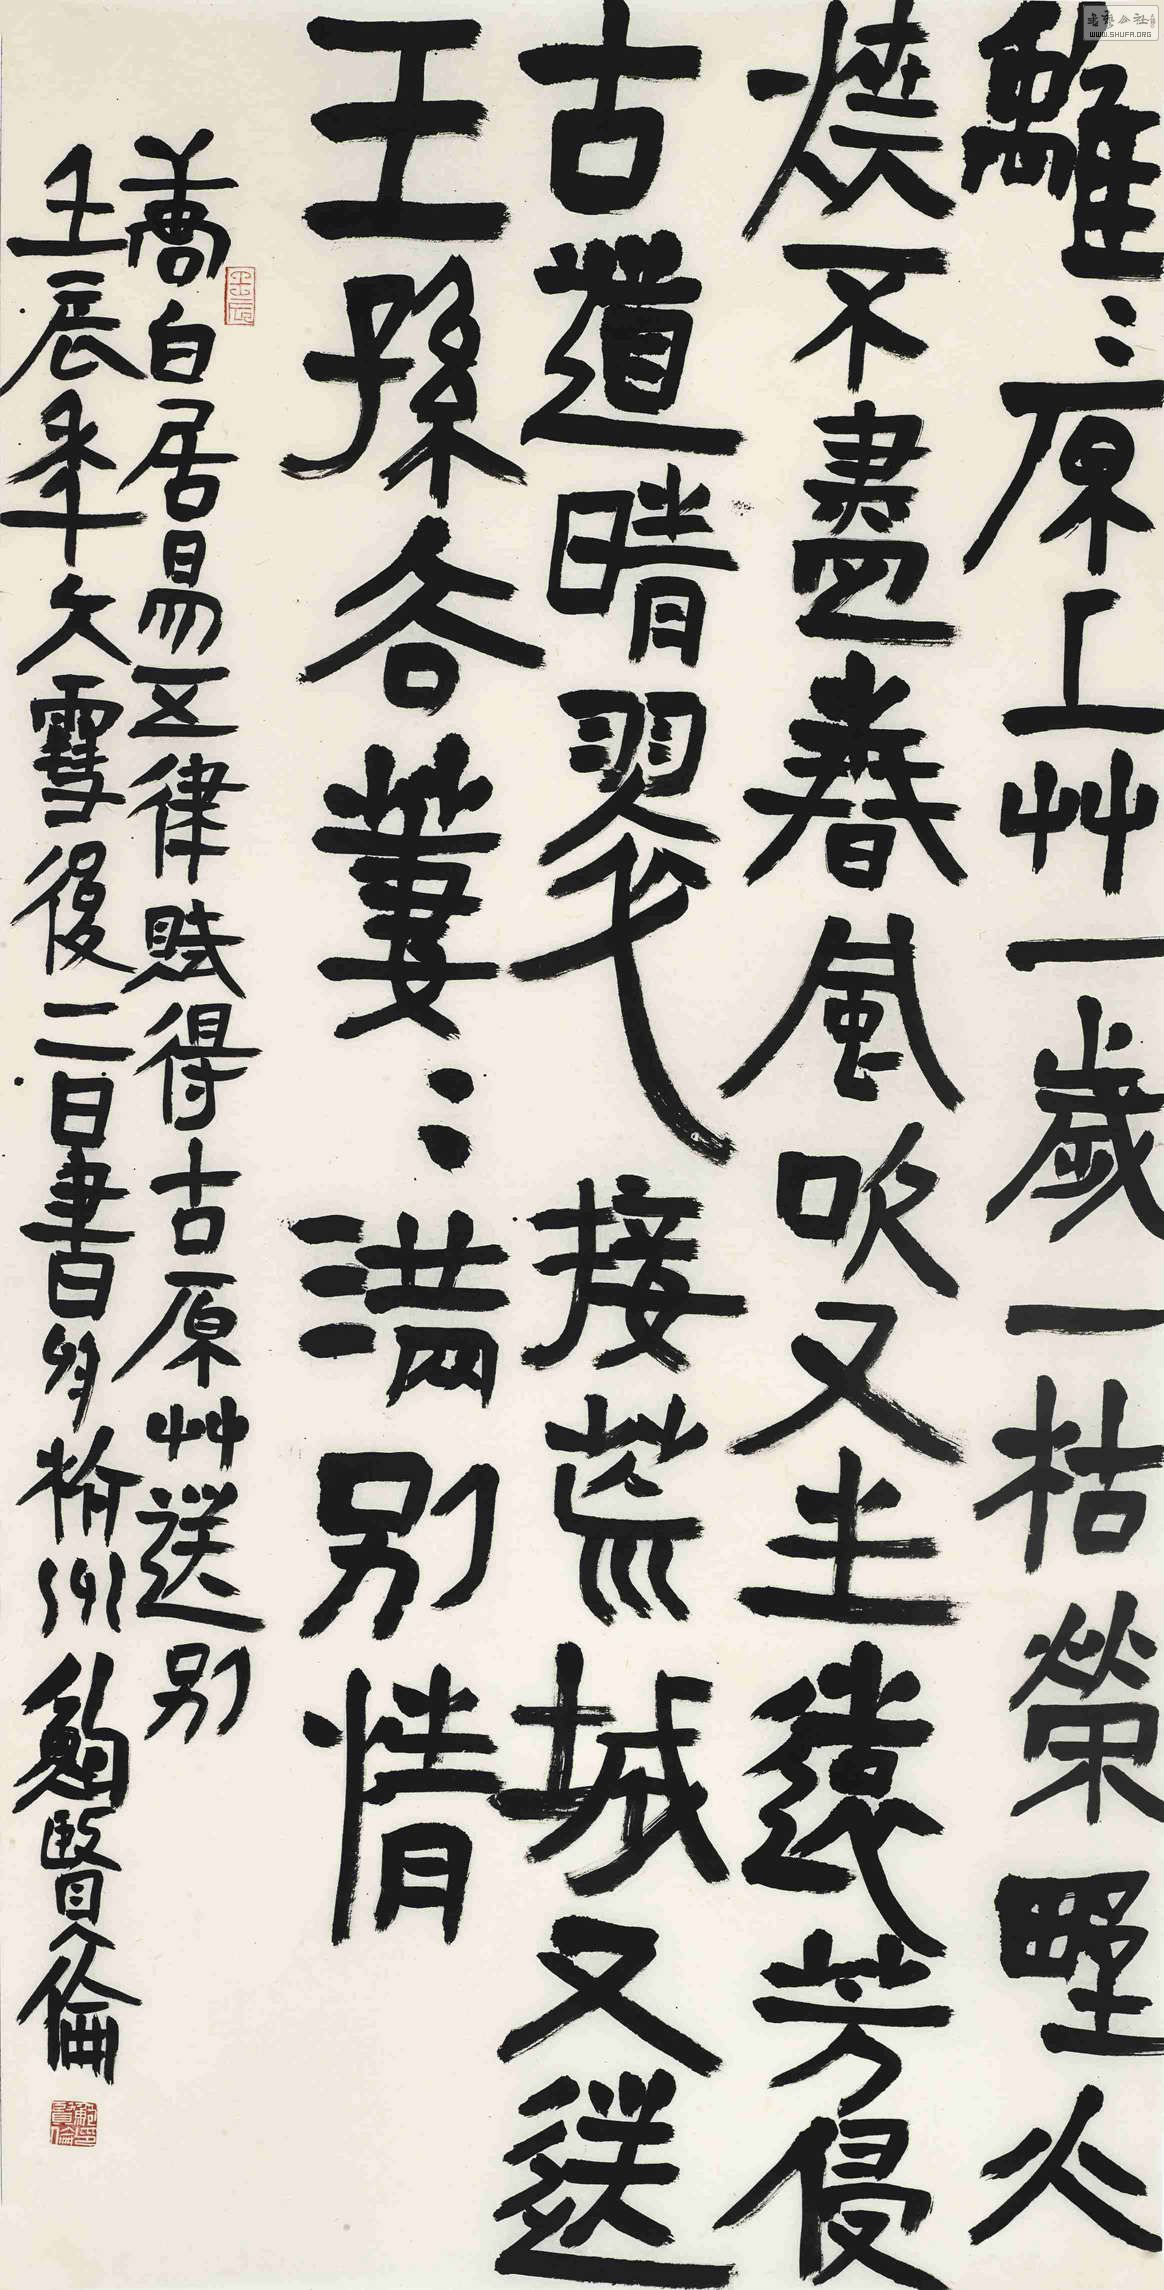 離〻原上艸一歲一枯榮野火
燒不盡春風吹又生遠芳侵
古道晴翠接荒城又送
王孫去萋〻滿別情
白居易五律賦得古原艸送別
壬辰年大雪後二日書於州鮑賢倫
壬辰
鮑賢倫印
書藝公社
WWW.SHUFA.ORG